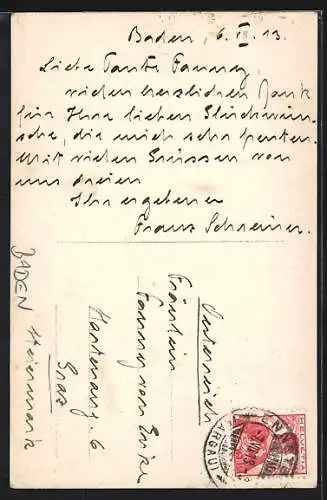 Baden, 6.VI.13.
Liebe Tante Fanny,
vielen herzlichen Dank
für Ihre lieben Glückwün-
sche, die mich sehr freuten.
Mit vielen Grüssen von
uns dreien
Ihr ergebener
Franz Schreiner.
Oesterreich
Fräulein
Fanny von
Hartmanng. 6
Graz
BADEN Steiermark
HELVETIA
ENNET
(AARGAU)